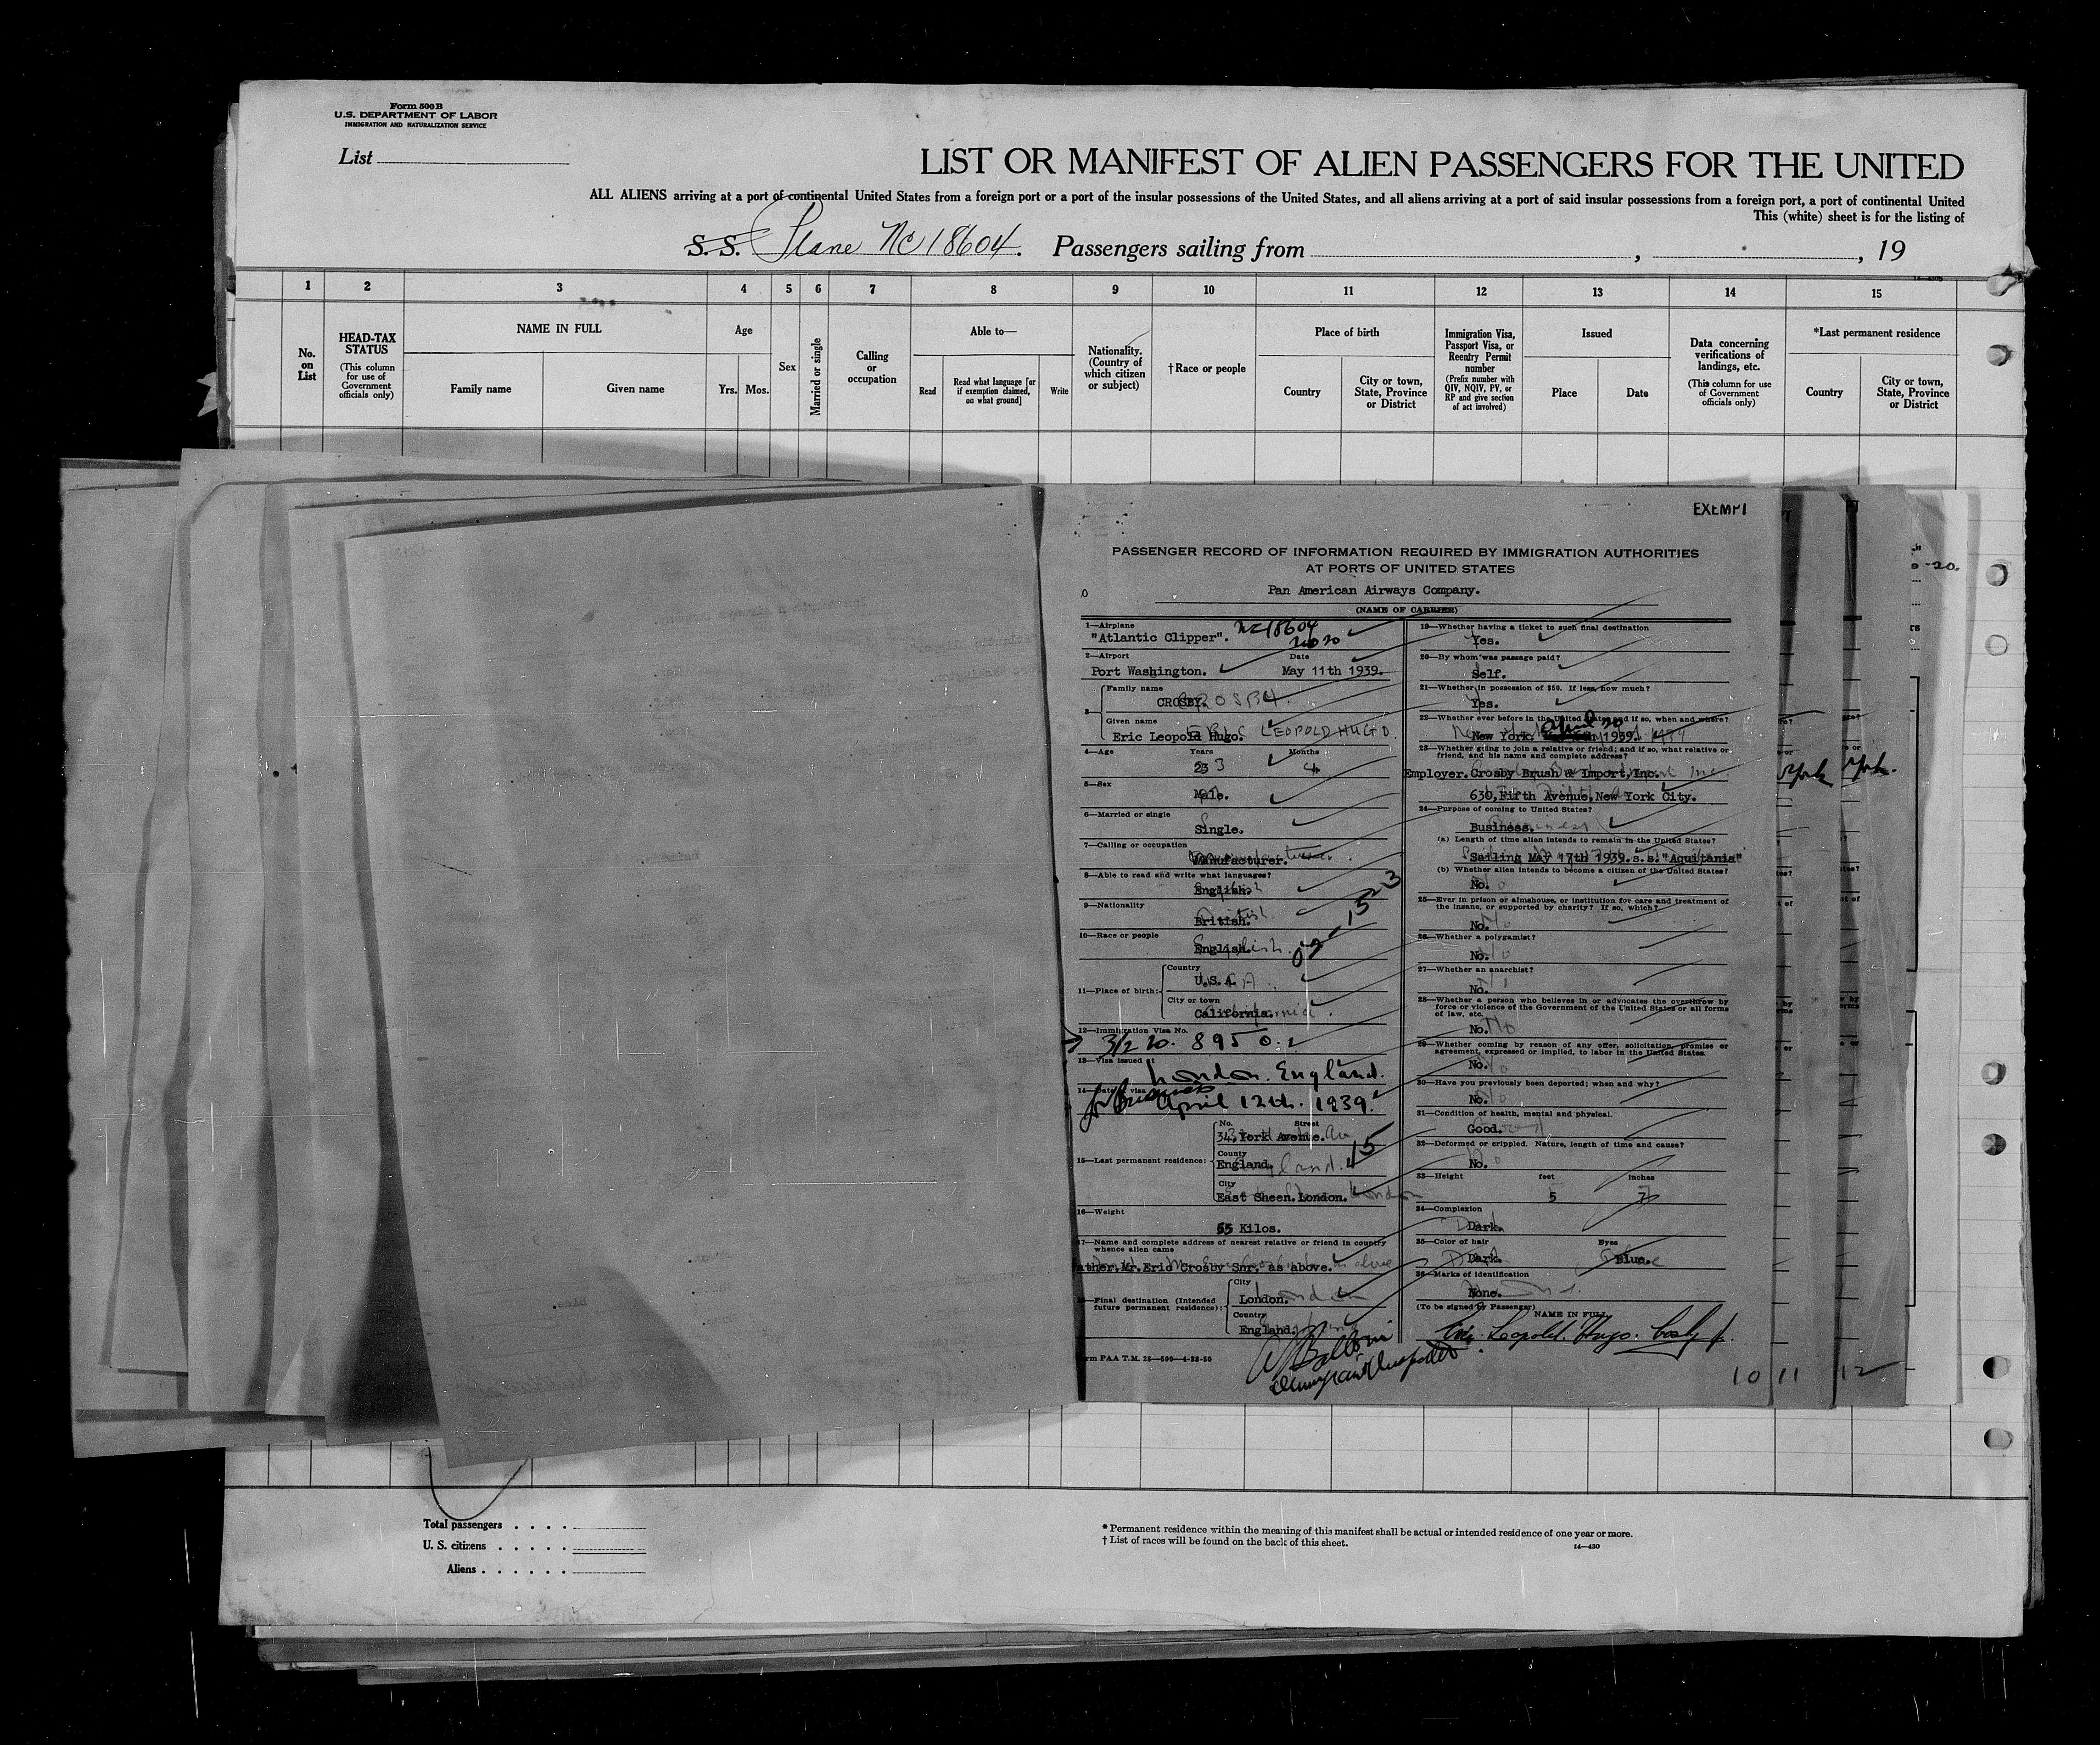 Form 500 B
U.S. DEPARTMENT OF LABOR
IMMIGRATION AND NATURALIZATION SERVICE
List
LIST OR MANIFEST OF ALIEN PASSENGERS FOR THE UNITED
ALL ALIENS arriving at a port of continental United States from a foreign port or a port of the insular possessions of the United States, and all aliens arriving at a port of said insular possessions from a foreign port, a port of continental United
This (white) sheet is for the listing of
S. S. Plane NC 18604. Passengers sailing from , , 19
1 2 3 4 5 6 7 8 9 10 11 12 13 14 15
No. on List
HEAD-TAX STATUS
(This column for use of Government officials only)
NAME IN FULL
Family name
Given name
Age
Yrs. Mos.
Sex
Married or single
Calling or occupation
Able to—
Read
Read what language [or if exemption claimed, on what ground]
Write
Nationality. (Country of which citizen or subject)
†Race or people
Place of birth
Country
City or town, State, Province or District
Immigration Visa, Passport Visa, or Reentry Permit number
(Prefix number with QIV, NQIV, PV, or RP and give section of act involved)
Issued
Place
Date
Data concerning verifications of landings, etc.
(This column for use of Government officials only)
*Last permanent residence
Country
City or town, State, Province or District
EXEMPT
PASSENGER RECORD OF INFORMATION REQUIRED BY IMMIGRATION AUTHORITIES
AT PORTS OF UNITED STATES
Pan American Airways Company.
(NAME OF CARRIER)
1—Airplane
"Atlantic Clipper". NC18604
2—Airport Date
Port Washington. May 11th 1939.
3— Family name
CROSBY.
CROSBY.
Given name
Eric Leopold Hugo.
LEOPOLD HUGO.
4—Age Years Months
23 4
5—Sex
Male.
6—Married or single
Single.
7—Calling or occupation
Manufacturer.
8—Able to read and write what languages?
English.
9—Nationality
British.
10—Race or people
English.
11—Place of birth:
Country
U.S.A.
City or town
California.
12—Immigration Visa No.
3/2 20. 8950.
13—Visa issued at
London. England.
14—Date of visa
for Business
April 12th. 1939.
15—Last permanent residence:
No. Street
34, York Avenue.
County
England.
City
East Sheen. London.
15
16—Weight
65 Kilos.
17—Name and complete address of nearest relative or friend in country
whence alien came
ather, Mr. Eric Crosby Snr. as above.
—Final destination (Intended
future permanent residence):
City
London.
Country
England.
rm PAA T.M. 28—500—4-28-50
Immigrant Inspector
19—Whether having a ticket to such final destination
Yes.
20—By whom was passage paid?
Self.
21—Whether in possession of $50. If less, how much?
Yes.
22—Whether ever before in the United States and if so, when and where?
April 20
New York. 1939.
23—Whether going to join a relative or friend; and if so, what relative or
friend, and his name and complete address?
Employer. Crosby Brush & Import, Inc.
630, Fifth Avenue, New York City.
24—Purpose of coming to United States?
Business.
(a) Length of time alien intends to remain in the United States?
Sailing May 17th 1939. s.s. "Aquitania"
(b) Whether alien intends to become a citizen of the United States?
No.
25—Ever in prison or almshouse, or institution for care and treatment of
the insane, or supported by charity? If so, which?
No.
26—Whether a polygamist?
No.
27—Whether an anarchist?
No.
28—Whether a person who believes in or advocates the overthrow by
force or violence of the Government of the United States or all forms
of law, etc.
No.
29—Whether coming by reason of any offer, solicitation, promise or
agreement, expressed or implied, to labor in the United States.
No.
30—Have you previously been deported; when and why?
No.
31—Condition of health, mental and physical.
Good.
32—Deformed or crippled. Nature, length of time and cause?
No.
33—Height feet inches
5 7
34—Complexion
Dark.
35—Color of hair Eyes
Dark. Blue.
36—Marks of identification
None.
(To be signed by Passenger)
NAME IN FULL
Eric Leopold. Hugo. Crosby Jr.
10 11 12
Total passengers
U. S. citizens
Aliens
* Permanent residence within the meaning of this manifest shall be actual or intended residence of one year or more.
† List of races will be found on the back of this sheet.
14—430